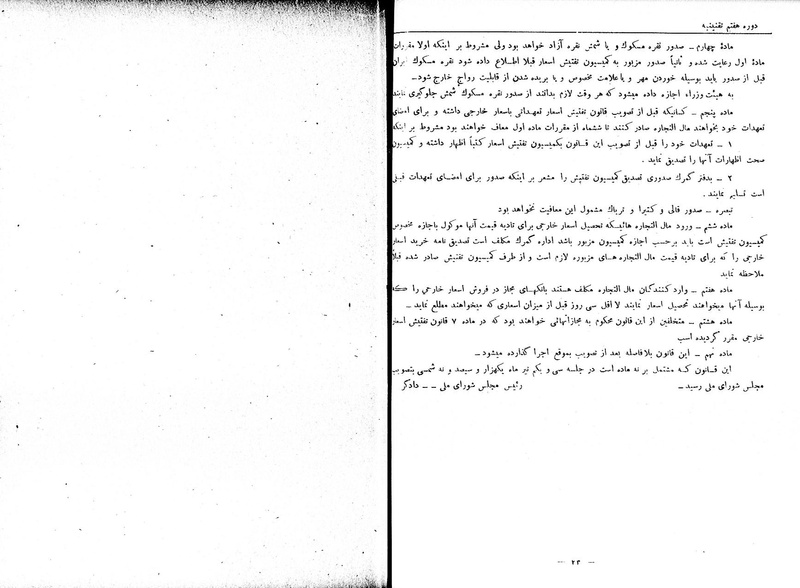 دوره هفتم تقنینیه
مادهٔ چهارم ـ صدور نقره مسکوك و یا شمش نقره آزاد خواهد بود ولی مشروط بر اینکه اولا مقررات
مادهٔ اول رعایت شده و ثانیاً صدور مزبور به کمیسیون تفتیش اسعار قبلا اطلاع داده شود نقره مسکوك ایران
قبل از صدور باید بوسیله خوردن مهر و یا علامت مخصوص و یا بریده شدن از قابلیت رواج خارج شود ـ
به هیئت وزراء اجازه داده میشود که هر وقت لازم بدانند از صدور نقره مسکوك شمش جلوگیری نمایند
ماده پنجم ـ کسانیکه قبل از تصویب قانون تفتیش اسعار تعهداتی باسعار خارجی داشته و برای امضای
تعهدات خود بخواهند مال التجاره صادر کنند تا ششماه از مقررات ماده اول معاف خواهند بود مشروط بر اینکه
۱ ـ تعهدات خود را قبل از تصویب این قانون بکمیسیون تفتیش اسعار کتباً اظهار داشته و کمیسیون
صحت اظهارات آنها را تصدیق نماید .
۲ ـ بدفتر گمرك صدوری تصدیق کمیسیون تفتیش را مشعر بر اینکه صدور برای امضای تعهدات قبلی
است تسلیم نمایند .
تبصره ـ صدور قالی و کتیرا و تریاك مشمول این معافیت نخواهد بود
ماده ششم ـ ورود مال التجاره هائیکه تحصیل اسعار خارجی برای تادیه قیمت آنها موکول باجازه مخصوص
کمیسیون تفتیش است باید برحسب اجازه کمیسیون مزبور باشد اداره گمرك مکلف است تصدیق نامه خرید اسعار
خارجی را که برای تادیه قیمت مال التجاره های مزبوره لازم است و از طرف کمیسیون تفتیش صادر شده قبلاً
ملاحظه نماید
ماده هفتم ـ وارد کنندگان مال التجاره مکلف هستند بانکهای مجاز در فروش اسعار خارجی را که
بوسیله آنها میخواهند تحصیل اسعار نمایند لا اقل سی روز قبل از میزان اسعاری که میخواهند مطلع نماید ـ
ماده هشتم ـ متخلفین از این قانون محکوم به مجازاتهائی خواهند بود که در ماده ۷ قانون تفتیش اسعار
خارجی مقرر گردیده اسب
ماده نهم ـ این قانون بلافاصله بعد از تصویب بموقع اجرا گذارده میشود ـ
این قانون که مشتمل بر نه ماده است در جلسه سی و یکم تیر ماه یکهزار و سیصد و نه شمسی بتصویب
مجلس شورای ملی رسید ـ رئیس مجلس شورای ملی ـ ـ دادگر
— ۲۳ —